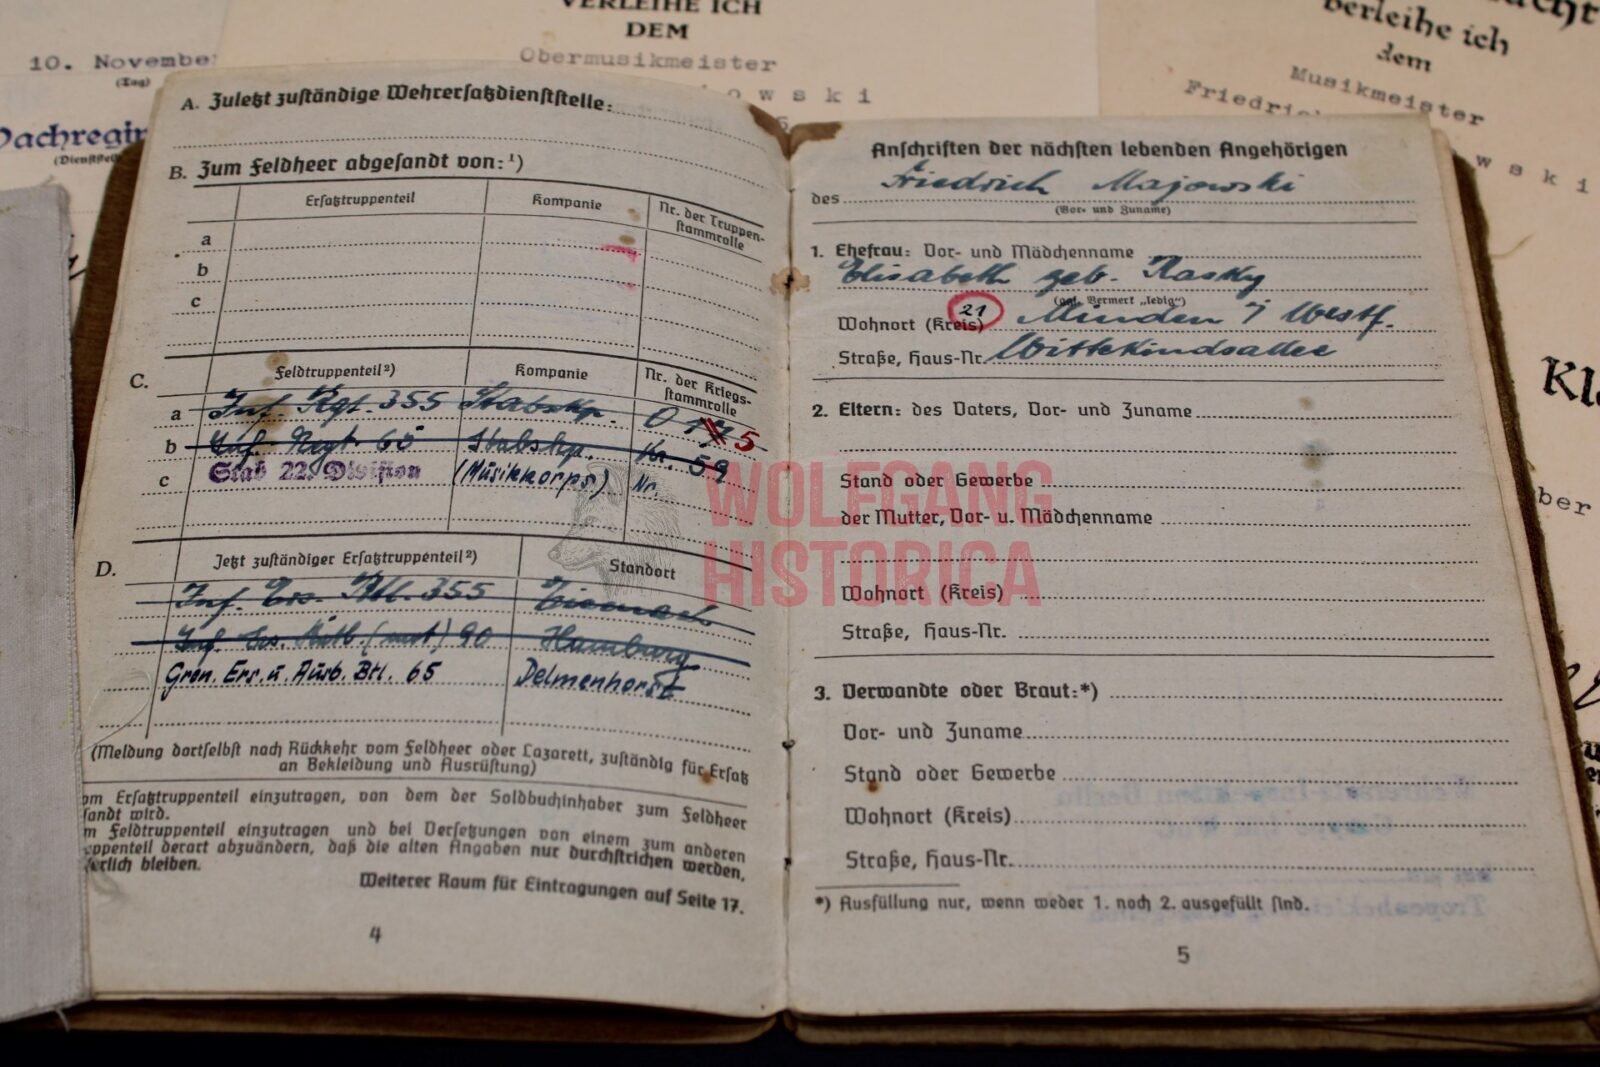 10. November
(Tag)
Wachregim
(Dienststel
VERLEIHE ICH
DEM
Obermusikmeister
owski
verleihe ich
dem
Musikmeister
Friedrich
wski
Kl
ber
A. Zuletzt zuständige Wehrersatzdienststelle:
B. Zum Feldheer abgesandt von:¹)
Ersatztruppenteil Kompanie Nr. der Truppen-
stammrolle
a
b
c
C. Feldtruppenteil²) Kompanie Nr. der Kriegs-
stammrolle
a Inf. Rgt. 355 Stabskp. 5
b Inf. Regt. 65 Stabskp. Nr. 59
c Stab 22. Division (Musikkorps) Nr.
D. Jetzt zuständiger Ersatztruppenteil²) Standort
Inf. Ers. Btl. 355 Eisenach
Inf. Ers. Batl. (mot) 90 Hamburg
Gren. Ers. u. Ausb. Btl. 65 Delmenhorst
(Meldung dortselbst nach Rückkehr vom Feldheer oder Lazarett, zuständig für Ersatz
an Bekleidung und Ausrüstung)
om Ersatztruppenteil einzutragen, von dem der Soldbuchinhaber zum Feldheer
sandt wird.
m Feldtruppenteil einzutragen und bei Versetzungen von einem zum anderen
ppenteil derart abzuändern, daß die alten Angaben nur durchstrichen werden,
erlich bleiben.
Weiterer Raum für Eintragungen auf Seite 17.
4
Anschriften der nächsten lebenden Angehörigen
des Friedrich Majowski
(Vor- und Zuname)
1. Ehefrau: Vor- und Mädchenname
Elisabeth geb. Rasky
(ggf. Vermerk „ledig")
Wohnort (Kreis) 21 Minden i Westf.
Straße, Haus-Nr. Wittekindsallee
2. Eltern: des Vaters, Vor- und Zuname
Stand oder Gewerbe
der Mutter, Vor- u. Mädchenname
Wohnort (Kreis)
Straße, Haus-Nr.
3. Verwandte oder Braut:*)
Vor- und Zuname
Stand oder Gewerbe
Wohnort (Kreis)
Straße, Haus-Nr.
*) Ausfüllung nur, wenn weder 1. noch 2. ausgefüllt sind.
5
WOLFGANG
HISTORICA